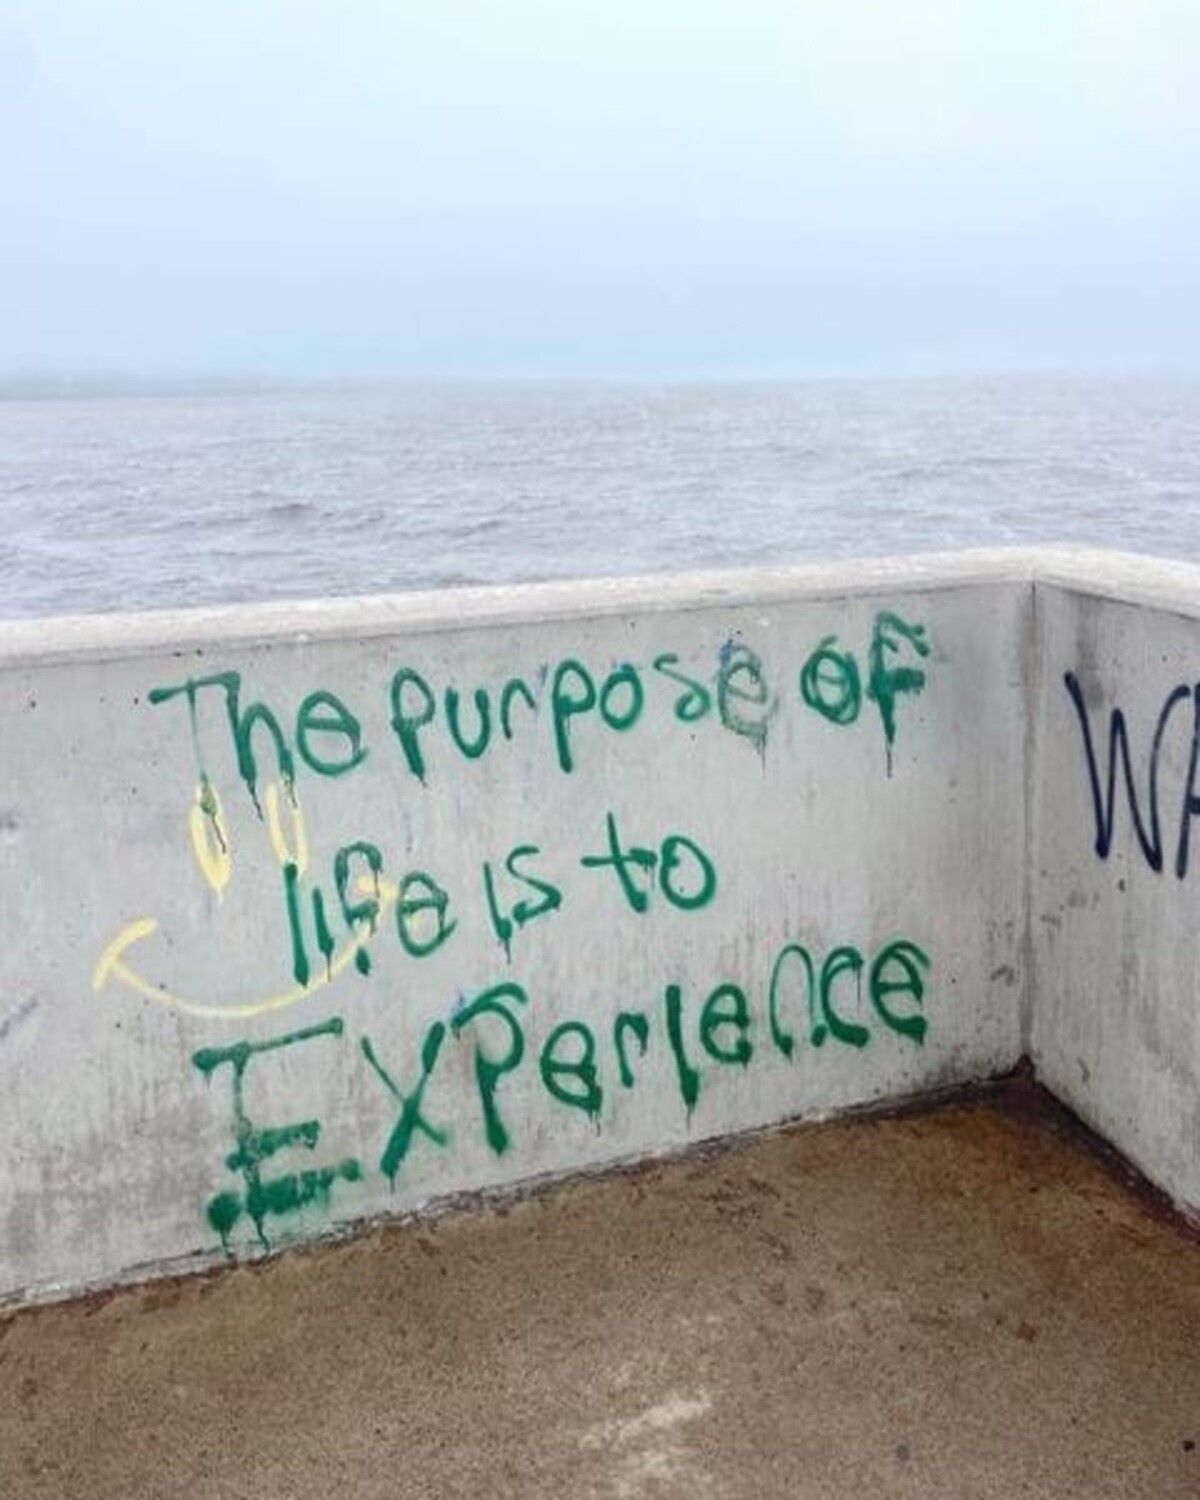 The purpose of
life is to
Experience